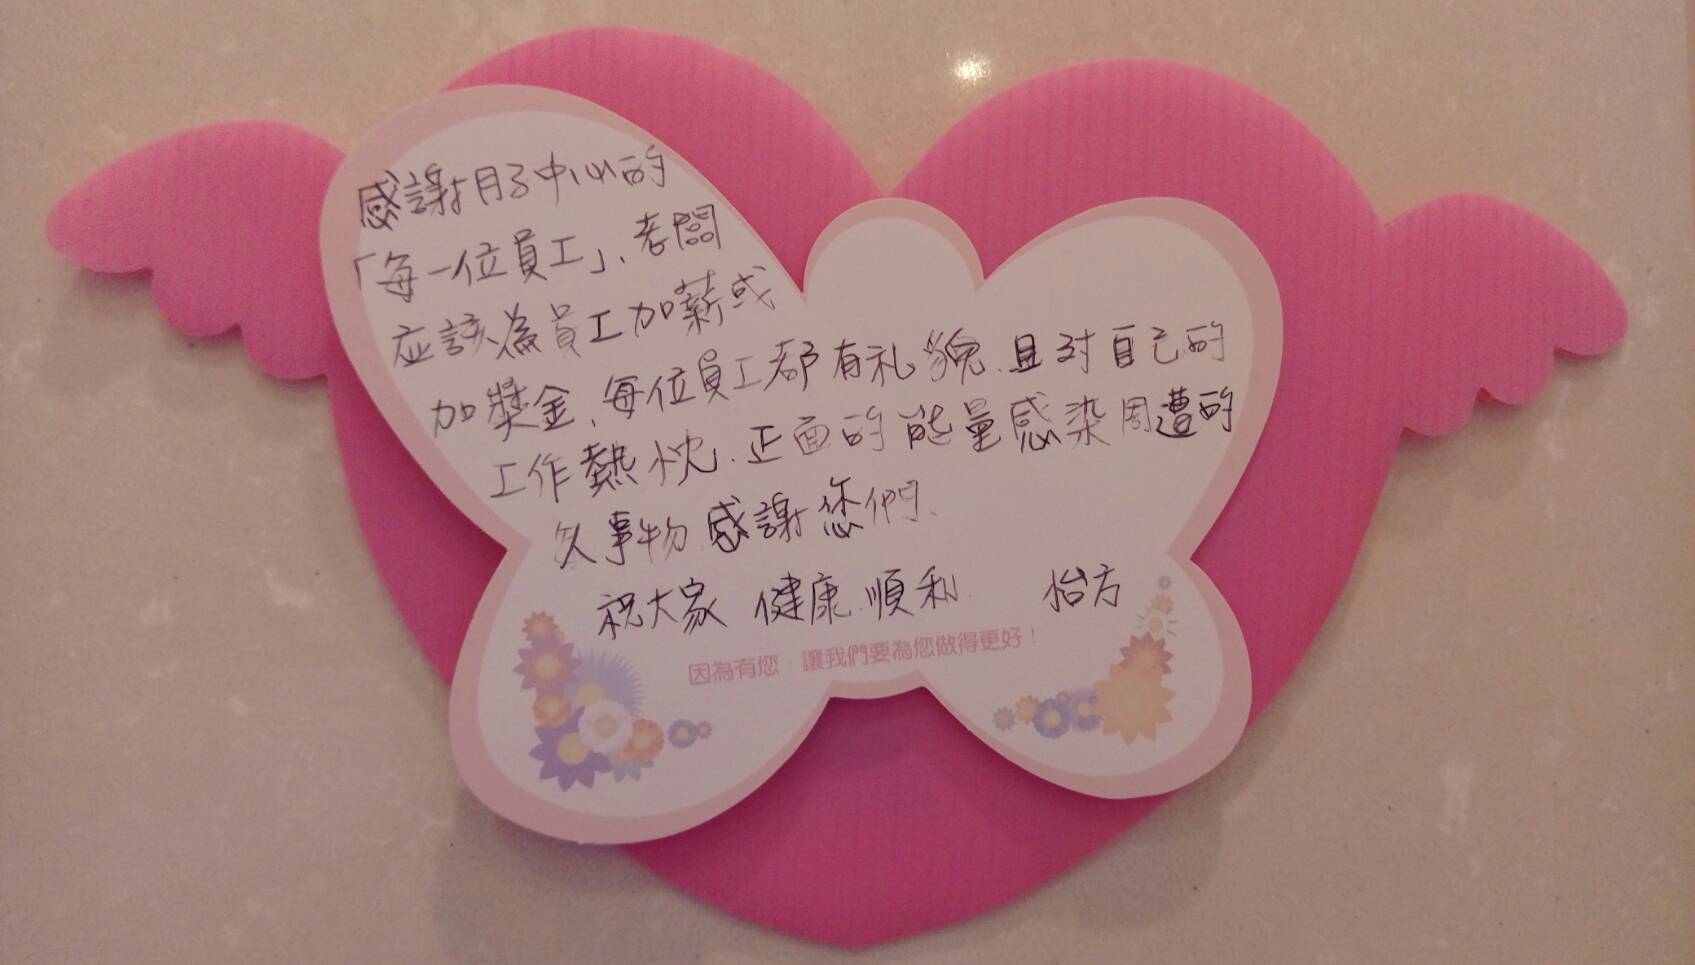 感謝月子中心的
「每一位員工」、老闆
應該為員工加薪或
加獎金、每位員工都有礼貌、且對自己的
工作熱忱、正面的能量感染周遭的
人事物、感謝您們、
祝大家 健康、順利、 怡方
因為有您，讓我們要為您做得更好！